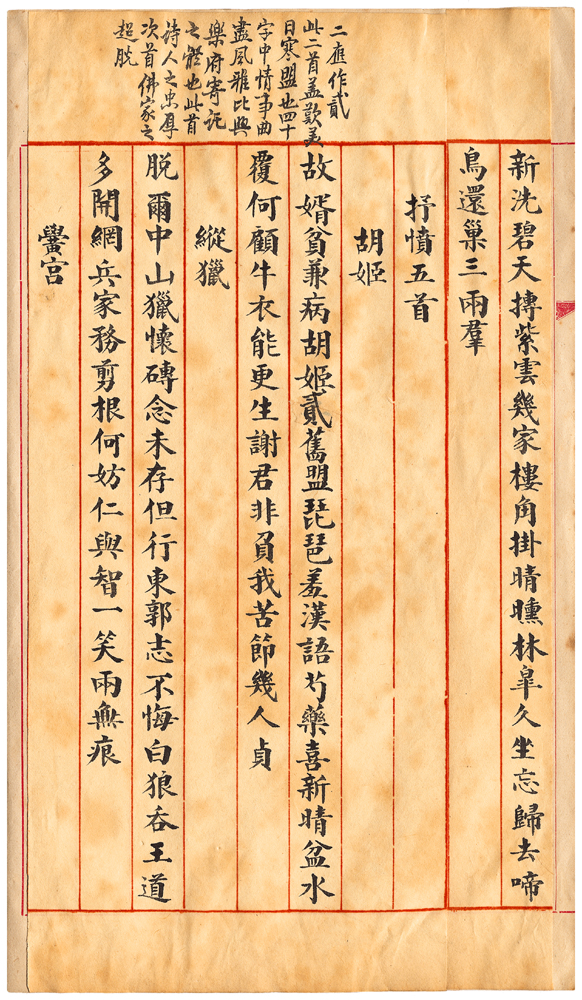 二應作貳
此二首蓋歎美
日寒盟也四十
字中情事曲
盡風雅比興
樂府寄託
之體也此首
詩人之忠厚
次首佛家之
超脫
新洗碧天摶紫雲幾家樓角掛晴曛林皋久坐忘歸去啼
鳥還巢三兩羣
抒憤五首
胡姬
故婿貧兼病胡姬貳舊盟琵琶羞漢語芍藥喜新晴盆水
覆何顧牛衣能更生謝君非負我苦節幾人貞
縱獵
脫爾中山獵懷磚念未存但行東郭志不悔白狼吞王道
多開網兵家務剪根何妨仁與智一笑兩無痕
黌宮